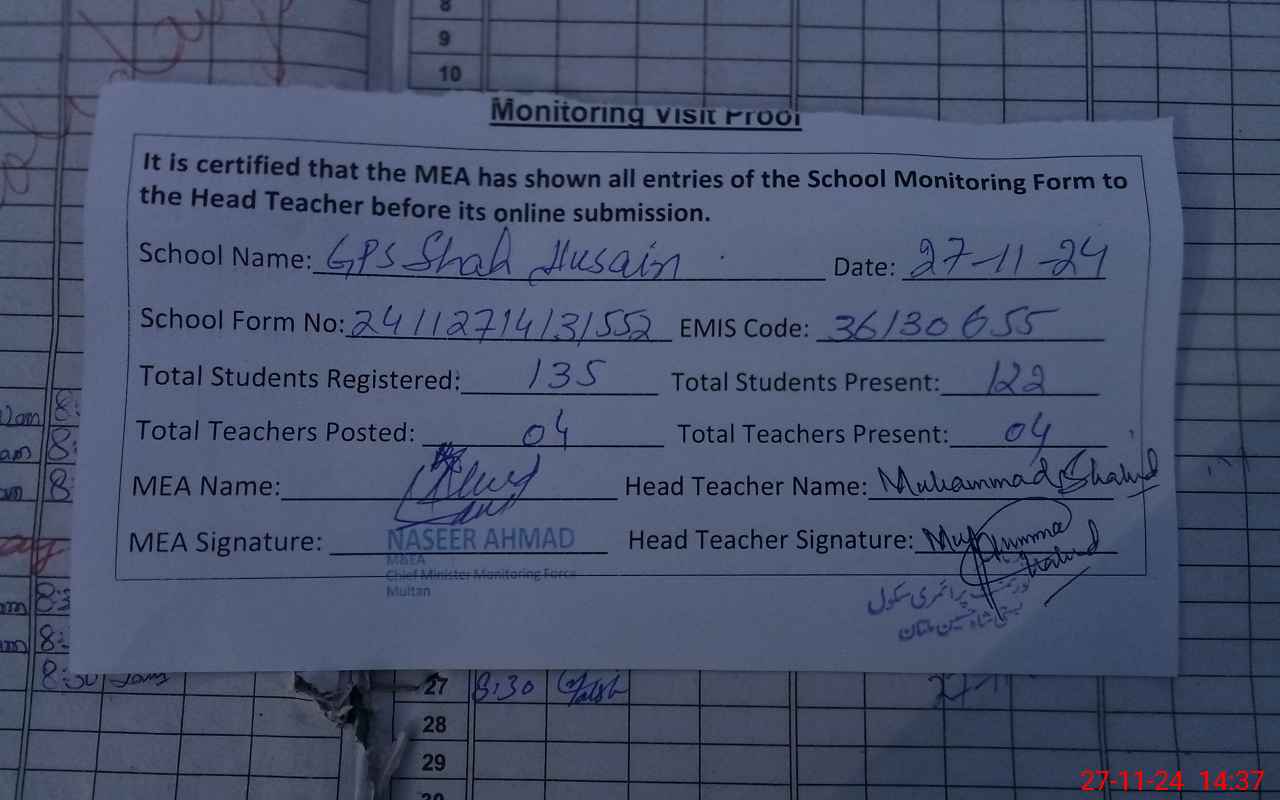 8
9
10
Monitoring Visit Proof
It is certified that the MEA has shown all entries of the School Monitoring Form to
the Head Teacher before its online submission.
School Name: GPS Shah Husain Date: 27-11-24
School Form No: 24112714131552 EMIS Code: 36130655
Total Students Registered: 135 Total Students Present: 122
Total Teachers Posted: 04 Total Teachers Present: 04
MEA Name: Head Teacher Name: Muhammad Shahid
MEA Signature: NASEER AHMAD Head Teacher Signature:
M&EA
Chief Minister Monitoring Force
Multan
گورنمنٹ پرائمری سکول
بستی شاہ حسین ملتان
8:30
27 8:30
28
29
30
27-11-24 14:37